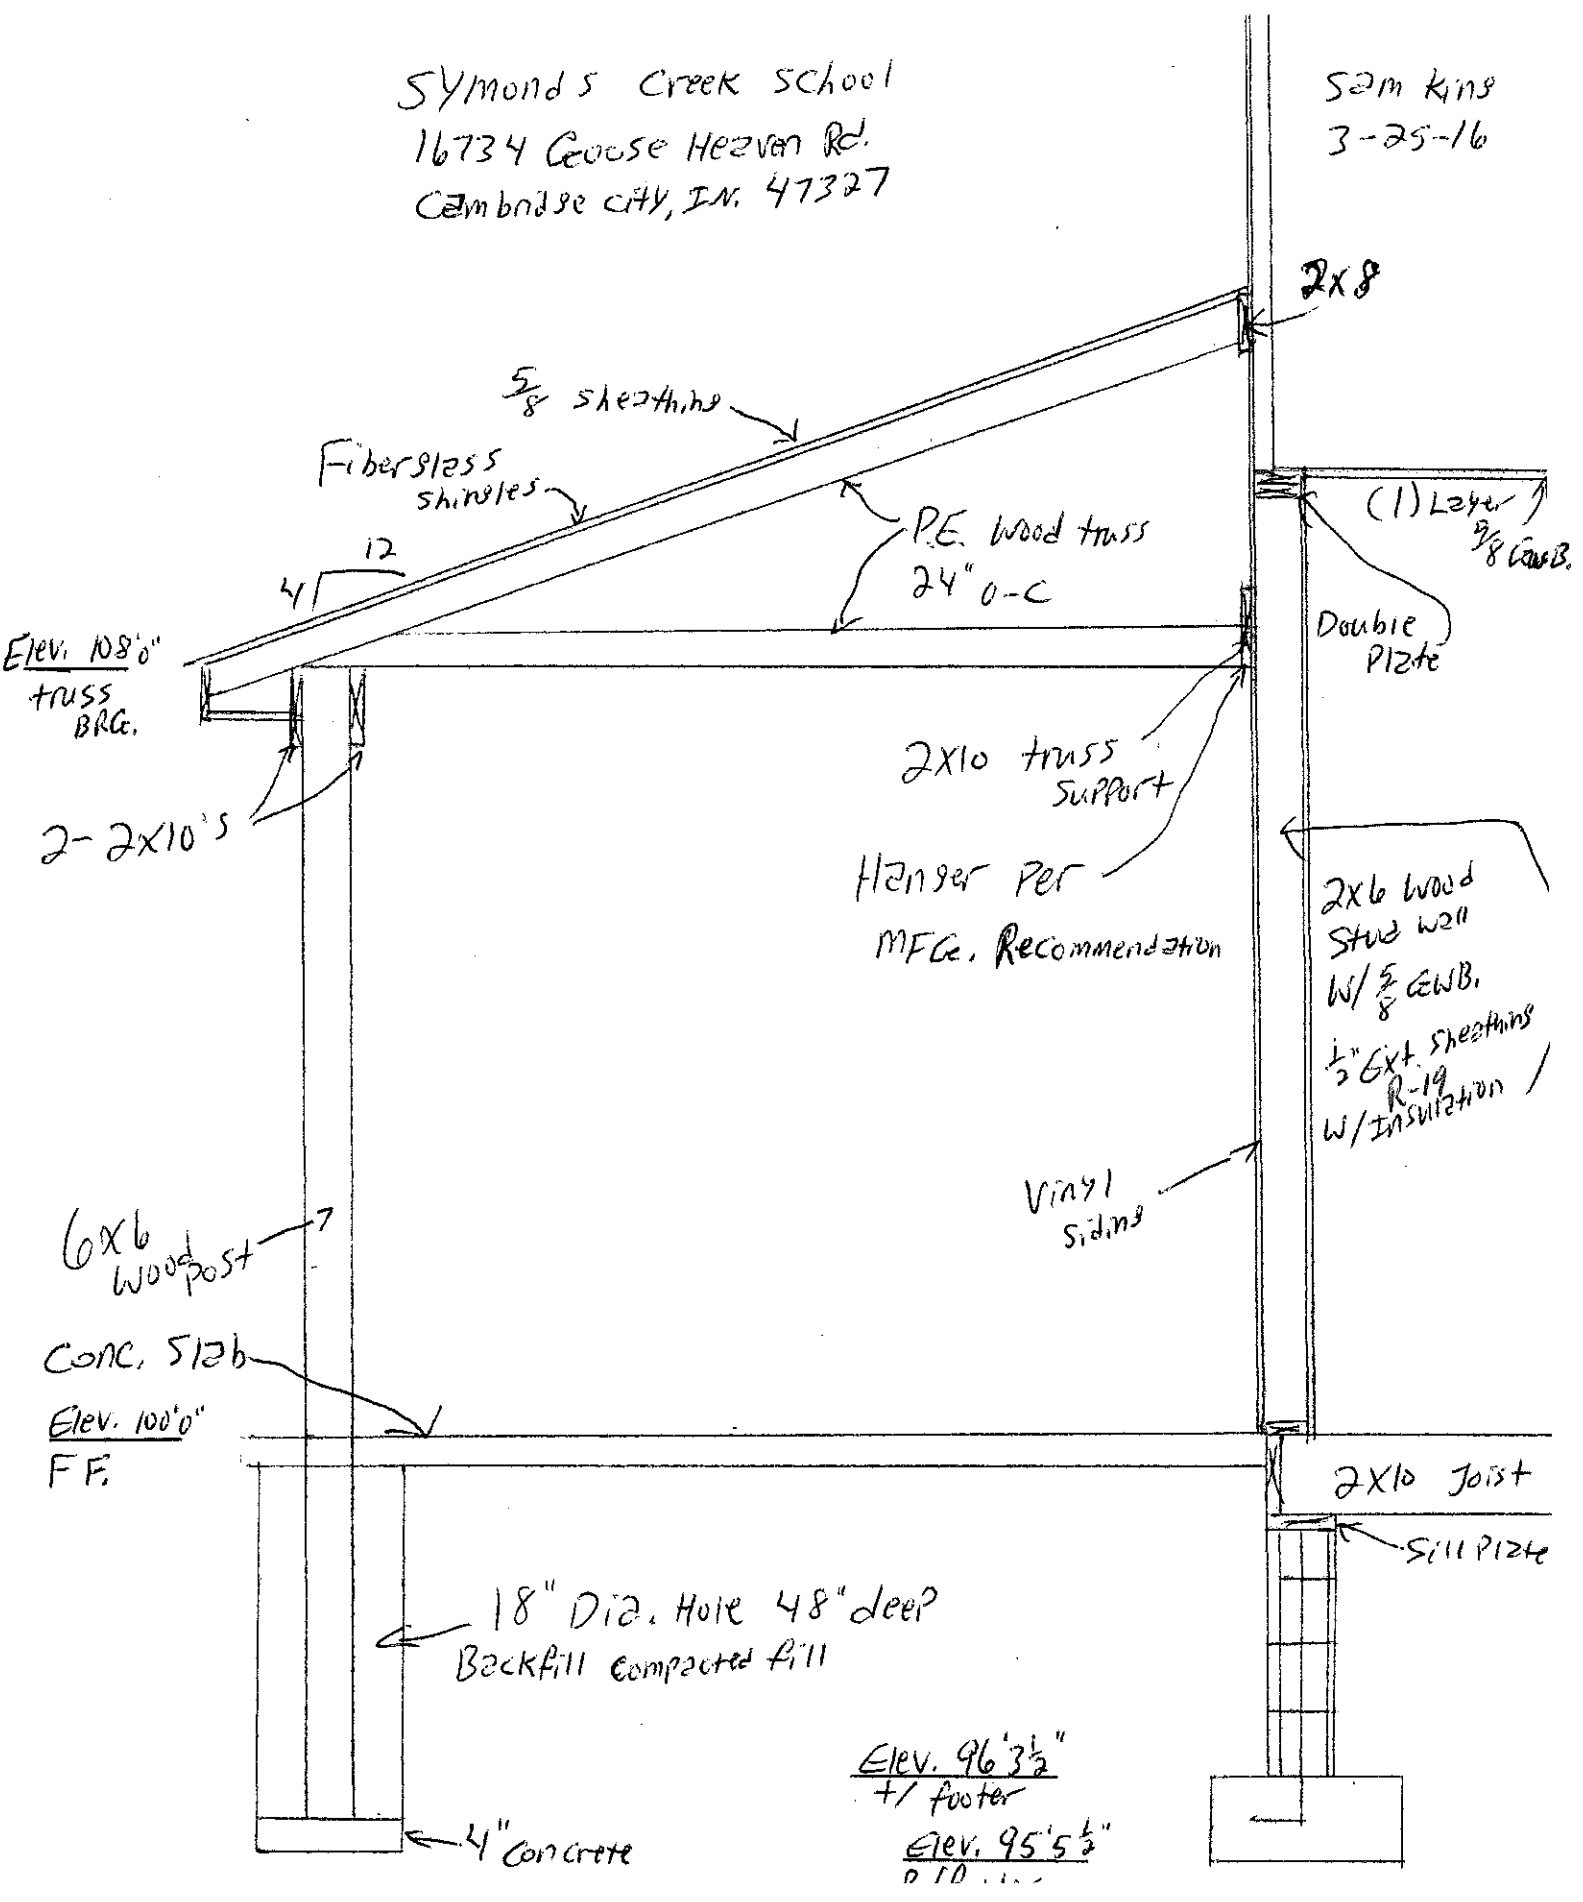 Symonds Creek School
16734 Goose Heaven Rd.
Cambridge City, IN. 47327
Sam King
3-25-16
2x8
5/8 sheathing
Fiberglass
shingles
12
4
P.E. Wood truss
24" o-c
(1) Layer
5/8 GWB.
Double
Plate
Elev. 108'0"
truss
BRG.
2-2x10's
2x10 truss
support
Hanger Per
MFG. Recommendation
2x6 wood
Stud wall
W/ 5/8 GWB.
1/2" Ext. sheathing
R-19
W/Insulation
Vinyl
siding
6x6
wood post
Conc. Slab
Elev. 100'0"
F F.
2x10 Joist
Sill Plate
18" Dia. Hole 48" deep
Backfill compacted fill
Elev. 96'3 1/2"
+/ footer
Elev. 95'5 1/2"
4" concrete